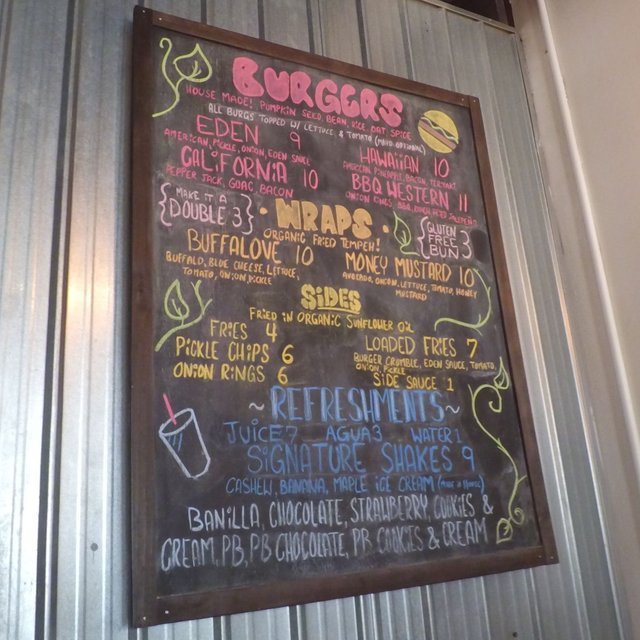 BURGERS
HOUSE MADE! PUMPKIN SEED, BEAN, RICE, OAT, SPICE
ALL BURGS TOPPED W/ LETTUCE & TOMATO (MAYO OPTIONAL)
EDEN 9
AMERICAN, PICKLE, ONION, EDEN SAUCE
HAWAIIAN 10
AMERICAN, PINEAPPLE, BACON, TERIYAKI
CALIFORNIA 10
PEPPER JACK, GUAC, BACON
BBQ WESTERN 11
ONION RINGS, BBQ, JALAPEÑO
MAKE IT A DOUBLE 3
GLUTEN FREE BUN 3
WRAPS
ORGANIC FRIED TEMPEH!
BUFFALOVE 10
BUFFALO, BLUE CHEESE, LETTUCE,
TOMATO, ONION, PICKLE
MONEY MUSTARD 10
AVOCADO, ONION, LETTUCE, TOMATO, HONEY
MUSTARD
SIDES
FRIED IN ORGANIC SUNFLOWER OIL
FRIES 4
LOADED FRIES 7
BURGER CRUMBLE, EDEN SAUCE, TOMATO,
ONION, PICKLE
PICKLE CHIPS 6
ONION RINGS 6
SIDE SAUCE 1
~REFRESHMENTS~
JUICE 7 AGUA 3 WATER 1
SIGNATURE SHAKES 9
CASHEW, BANANA, MAPLE ICE CREAM
BANILLA, CHOCOLATE, STRAWBERRY, COOKIES &
CREAM, PB, PB CHOCOLATE, PB COOKIES & CREAM